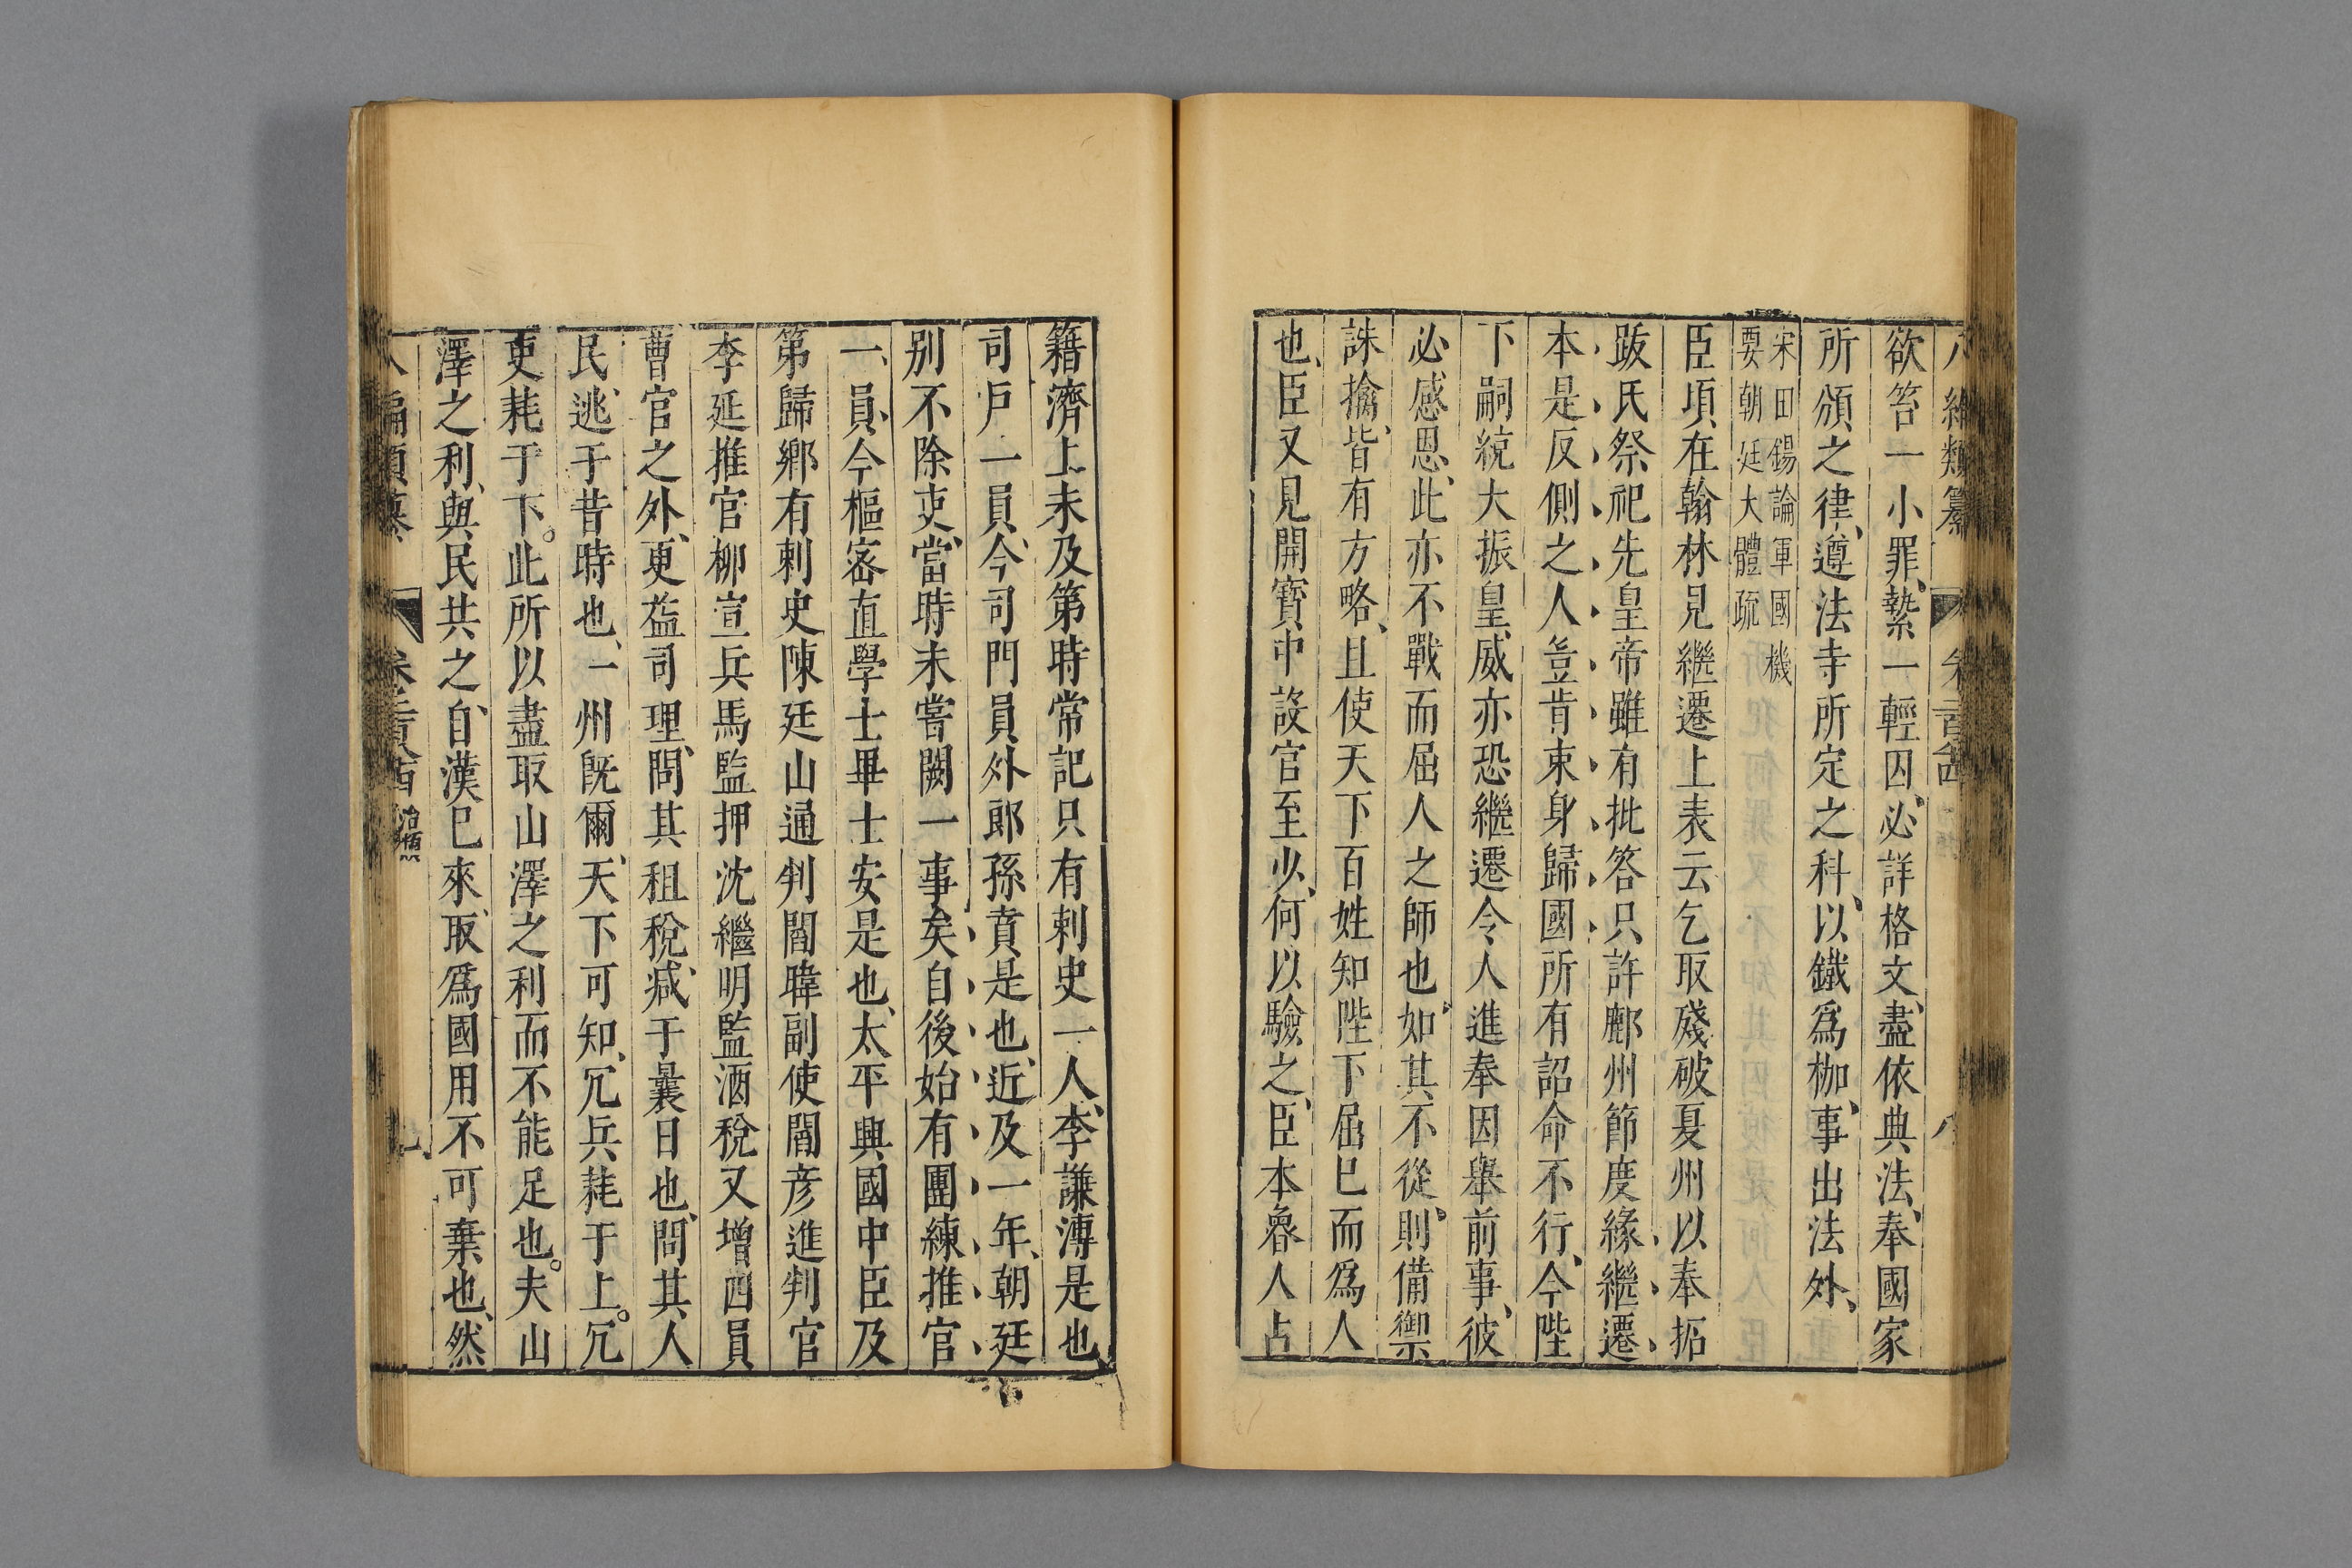 欲笞一小罪、縶一輕囚、必詳格文、盡依典法、奉國家
所頒之律、遵法寺所定之科、以鐵爲枷、事出法外、
宋田錫論軍國機
要朝廷大體疏
臣頃在翰林見繼遷上表云乞取殘破夏州以奉拓
跋氏祭祀先皇帝雖有批答只許鄜州節度緣繼遷
本是反側之人豈肯束身歸國所有詔命不行、今陛
下嗣統大振皇威亦恐繼遷令人進奉因舉前事、彼
必感恩、此亦不戰而屈人之師也。如其不從、則備禦
誅擒、皆有方略、且使天下百姓知陛下屈已而爲人
也、臣又見開寶中設官至少、何以驗之、臣本魯人占
籍濟上未及第時常記只有剌史一人、李謙溥是也
司戶一員、今司門員外郎孫賁是也、近及一年、朝廷
别不除吏、當時未嘗闕一事矣自後始有團練推官
一員、今樞密直學士畢士安是也、太平興國中臣及
第歸鄉有剌史陳廷山通判閻暐副使閻彦進判官
李延推官柳宣兵馬監押沈繼明監酒稅又增四員
曹官之外、更葢司理、問其租稅、减于曩日也、問其人
民、逃于昔時也、一州旣爾、天下可知、冗兵耗于上。冗
吏耗于下。此所以盡取山澤之利而不能足也。夫山
澤之利、與民共之、自漢已來、取爲國用不可棄也、然